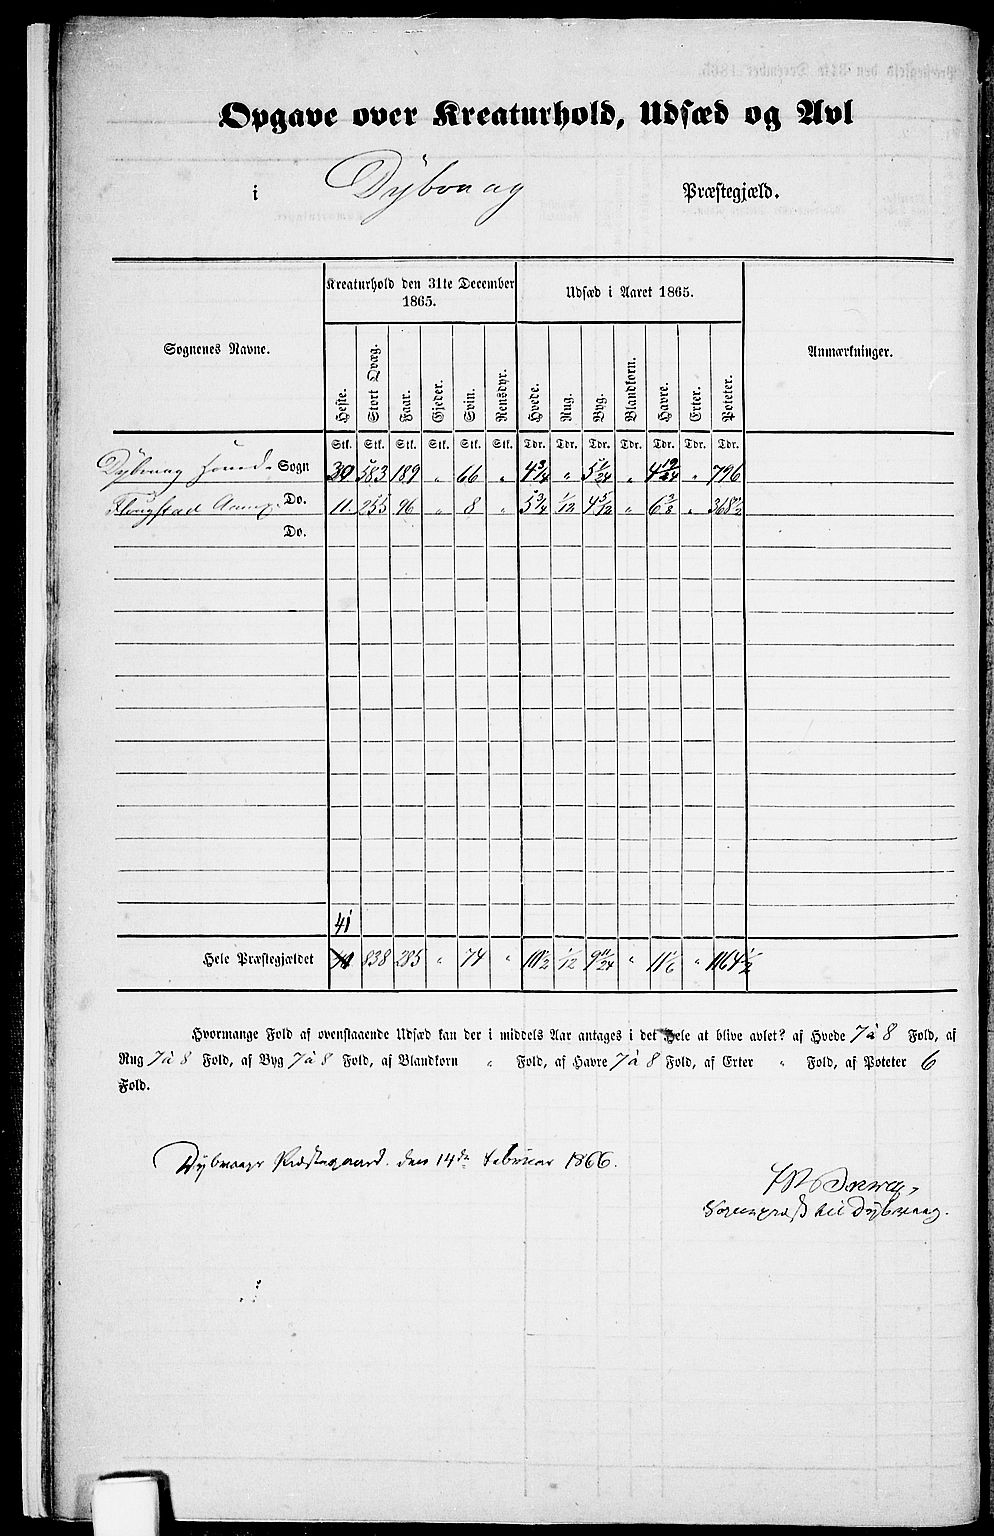 Opgave over Kreaturhold, Udsæd og Avl
i Dybvaag Præstegjæld.
Sognenes Navne. Kreaturhold den 31te December 1865. Udsæd i Aaret 1865. Anmærkninger.
Heste. Stort Qvæg. Faar. Gjeder. Svin. Rensdyr. Hvede. Rug. Byg. Blandkorn. Havre. Erter. Poteter.
Stk. Stk. Stk. Stk. Stk. Stk. Tdr. Tdr. Tdr. Tdr. Tdr. Tdr. Tdr.
Dybvaag Hoved- Sogn 30 583 189 „ 66 „ 4 3/4 „ 5 1/24 „ 4 19/24 „ 796
Do. 11. 255 96 „ 8 „ 5 3/4 1/12 4 5/12 „ 6 3/8 „ 368 1/2
Do.
41
Hele Præstegjældet 838 285 „ 74 „ 1/12 9 11/24 „ 11 1/6 „ 1164 1/2
Hvormange Fold af ovenstaaende Udsæd kan der i middels Aar antages i det Hele at blive avlet? af Hvede 7 à 8 Fold, af
Rug 7 à 8 Fold, af Byg 7 à 8 Fold, af Blandkorn „ Fold, af Havre 7 à 8 Fold, af Erter „ Fold, af Poteter 6
Fold.
Dybvaags Præstegaard. den 14de Februar 1866.
Sognepræst til Dybvaag.